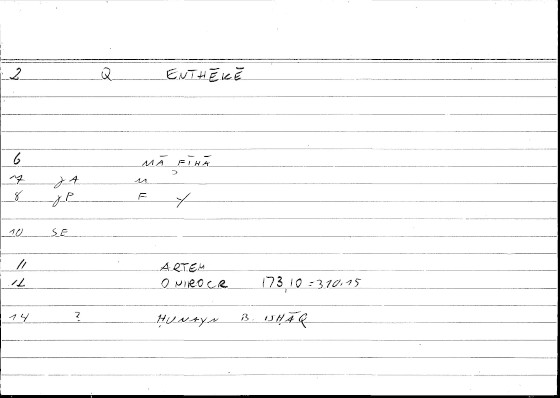 2 Q ENTHĒKĒ
6 MĀ FĪHĀ
7 γA M
8 γP F Y
10 SE
11 ARTEM
12 ONIROCR 173,10 = 310.15
14 ? ḤUNAYN B. ISḤĀQ